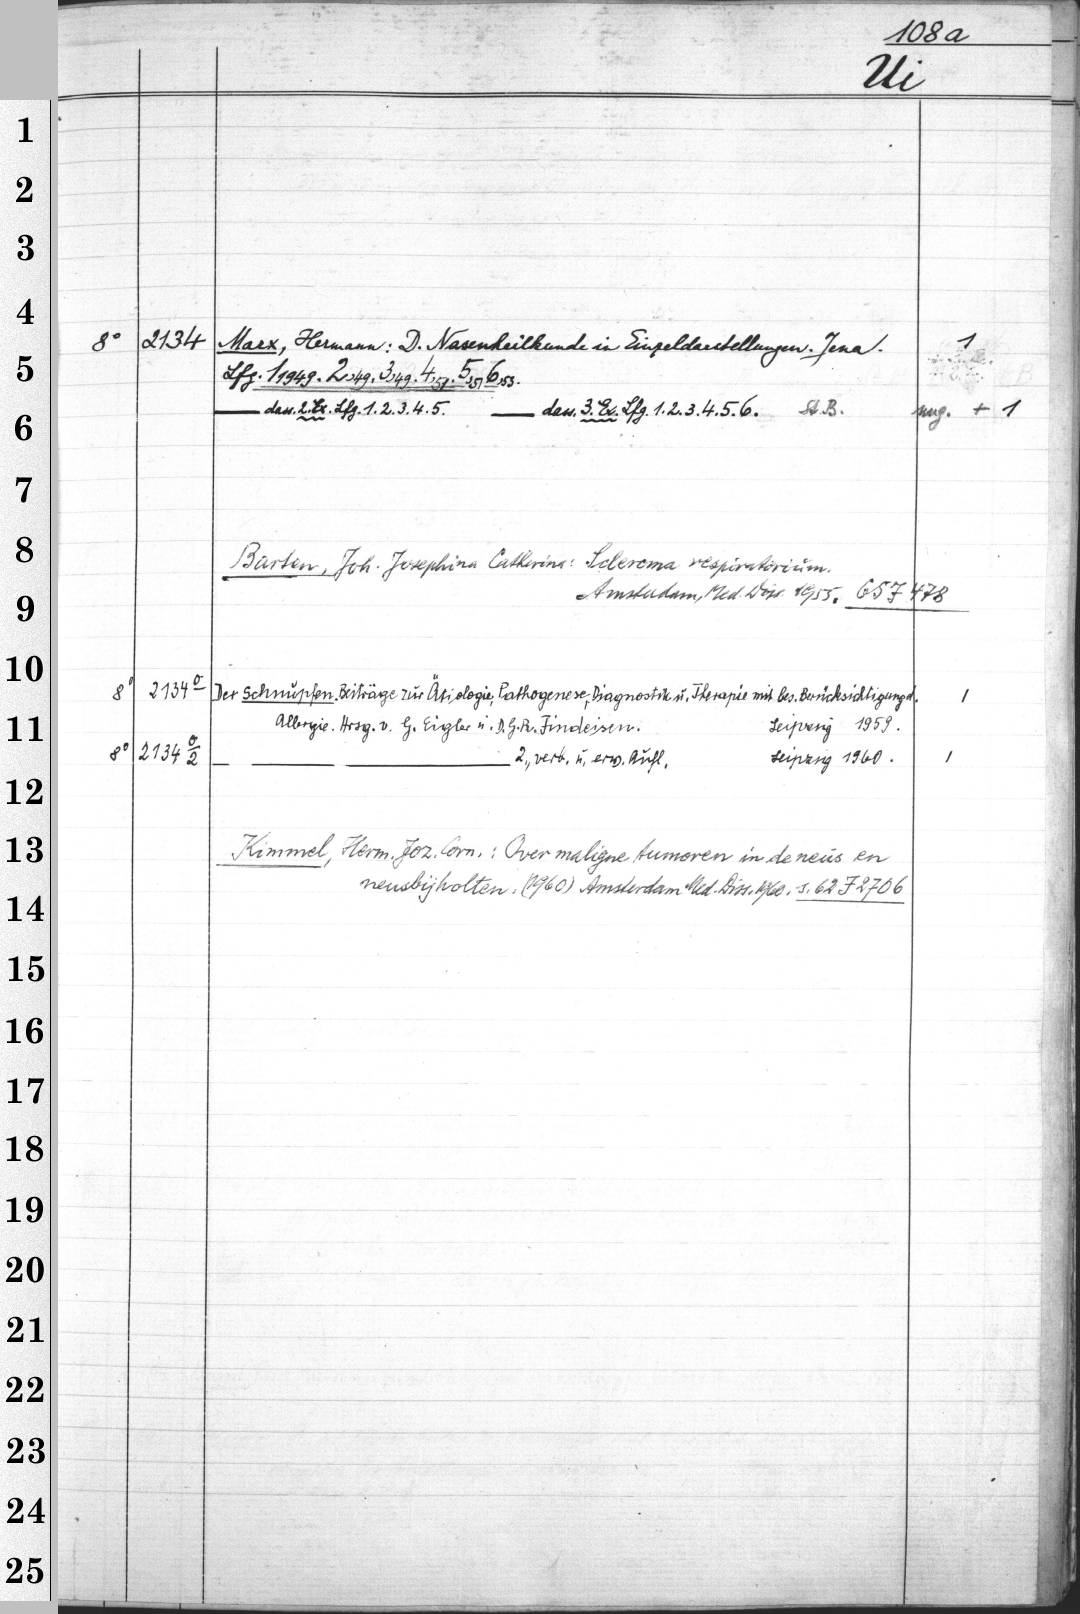 108a
Ui
1
2
3
4
8° 2134 Marx, Hermann: D. Nasenheilkunde in Einzeldarstellungen. Jena. 1
5
Lfg. 1,1949. 2,49. 3,49. 4,51. 5,51. 6,53.
6
dass. 2. Ex. Lfg. 1.2.3.4.5. dass. 3. Ex. Lfg. 1.2.3.4.5.6. St.B. ung. + 1
7
8
Barten, Joh. Josephina Catherina: Scleroma respiratorium.
9
Amsterdam, Med. Diss. 1955. 657 478
10
8° 2134 a Der Schnupfen. Beiträge zur Ätiologie, Pathogenese, Diagnostik u. Therapie mit bes. Berücksichtigung d. 1
11
Allergie. Hrsg. v. G. Eigler u. D.G.R. Findeisen. Leipzig 1959.
8° 2134 a/2 — — — 2., verb. u. erw. Aufl. Leipzig 1960. 1
12
13
Kimmel, Herm. Joz. Corn.: Over maligne tumoren in de neus en
14
neusbijholten. (1960) Amsterdam Med. Diss. 1960. s. 62 J 2706
15
16
17
18
19
20
21
22
23
24
25